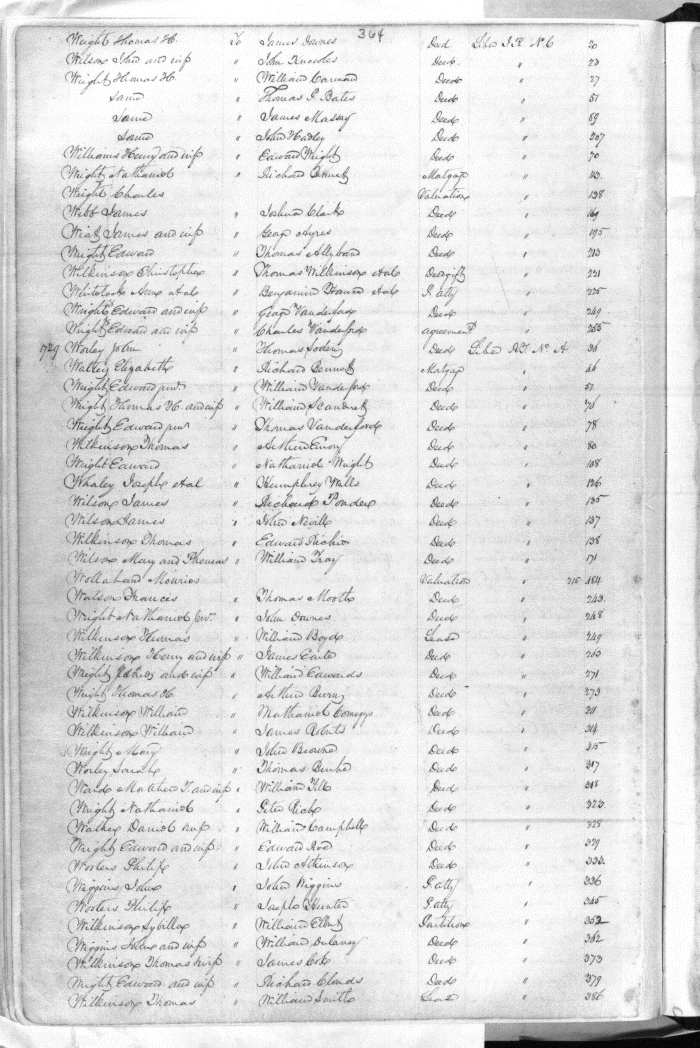 364
Wright Thomas H. To James Downes Deed Liber I K No C 20
Wilson John and wife " John Knowles Deed " 23
Wright Thomas H. " William Carman Deed " 27
Same " Thomas P. Bates Deed " 51
Same " James Massey Deed " 59
Same " John Hadley Deed " 207
Williams Henry and wife " Edward Wright Deed " 70
Wright Nathaniel " Richard Bennett Mortgage " 113
Wright Charles Valuation " 138
Webb James " Joshua Clark Deed " 169
Wiat James and wife " George Ayres Deed " 195
Wright Edward " Thomas Deed " 213
Wilkinson Christopher " Thomas Wilkinson et al Deed gift " 221
Anne et al " Benjamin et al P. atty " 225
Wright Edward and wife " George Vanderford Deed " 249
Wright Edward and wife " Charles Vanderford agreement " 255
1729 Worley John " Thomas Deed Liber No A 36
Elizabeth " Richard Bennett Mortgage " 46
Wright Edward junr " William Vanderford Deed " 51
Wright Thomas H and wife " William Deed " 76
Wright Edward junr " Thomas Vanderford Deed " 78
Wilkinson Thomas " Arthur Emory Deed " 80
Wright Edward " Nathaniel Wright Deed " 108
Whaley Joseph et al " Humphrey Wells Deed " 126
Wilson James " Richard Ponder Deed " 135
Wilson James " John Nevill Deed " 137
Wilkinson Thomas " Edward Deed " 138
Wilson Mary and Thomas " William Deed " 171
Valuation " 215 184
Watson Francis " Thomas Deed " 243
Wright Nathaniel Exr. " John Downes Deed " 248
Wilkinson Thomas " William Boyd Lease " 249
Wilkinson Henry and wife " James Earle Deed " 263
Wright and wife " William Edwards Deed " 271
Wright Thomas H " Arthur Deed " 273
Wilkinson William " Nathaniel Comegys Deed " 311
Wilkinson William " James Roberts Deed " 314
Wright Mary " John Browne Deed " 315
Worley Sarah " Thomas Deed " 317
Ward Matthew T. and wife " William Deed " 318
Wright Nathaniel " Peter Rich Deed " 323
Walker Daniel wife " William Campbell Deed " 328
Wright Edward and wife " Edward Deed " 329
Wooters Philip " John Atkinson Deed " 333
Wiggins John " John Wiggins P. atty " 336
Wooters Philip " Joseph Hunter P. atty " 345
Wilkinson Sybilla " William Elbert Partition " 352
Wiggins John and wife " William Dulaney Deed " 362
Wilkinson Thomas wife " James Deed " 373
Wright Edward and wife " Richard Clouds Deed " 379
Wilkinson Thomas " William Smith Lease " 386